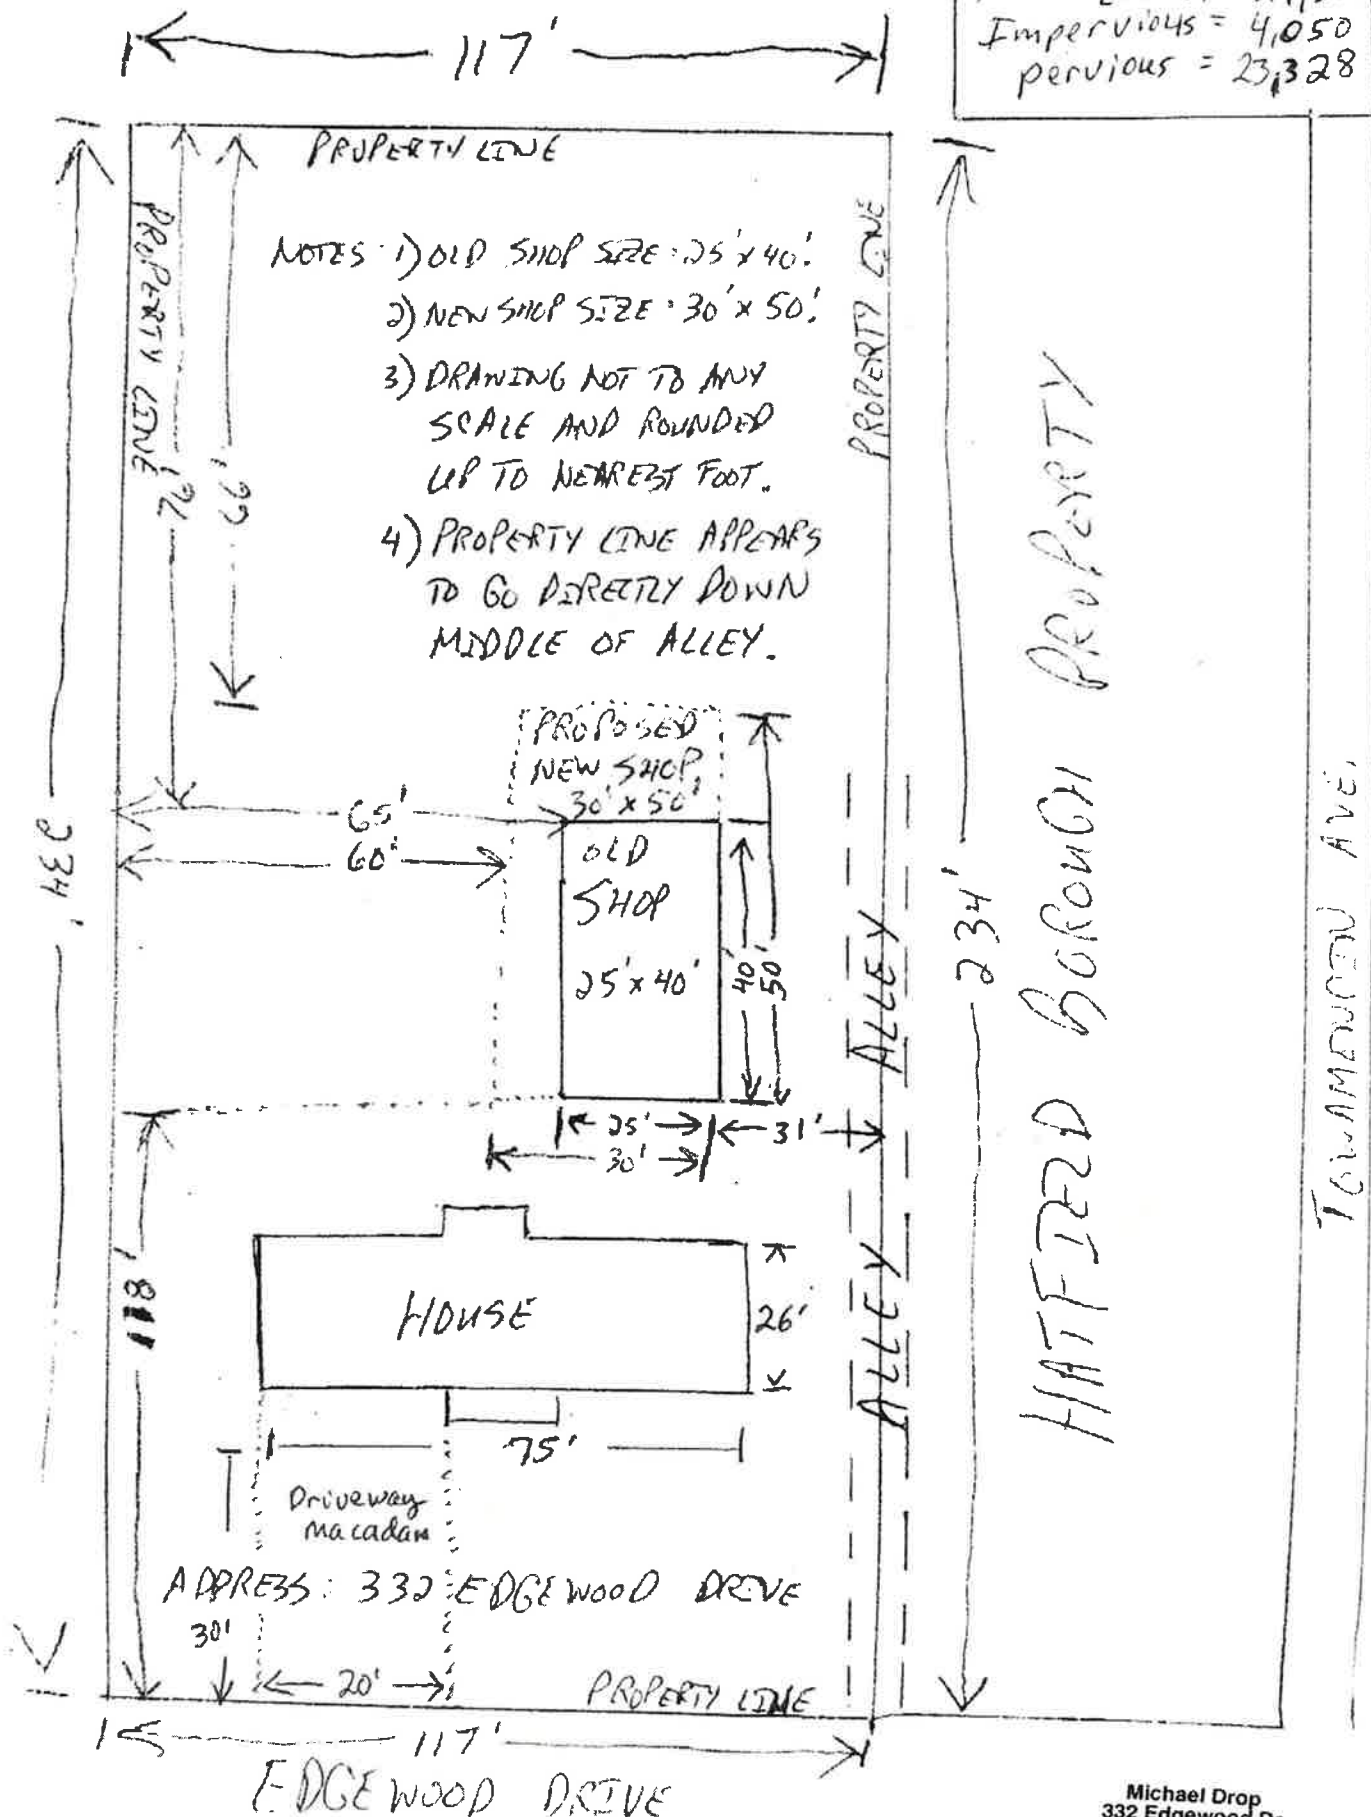 117'
Impervious = 4,050
pervious = 23,328
PROPERTY LINE
PROPERTY LINE
PROPERTY LINE
NOTES: 1) OLD SHOP SIZE: 25' x 40'.
2) NEW SHOP SIZE: 30' x 50'.
3) DRAWING NOT TO ANY
SCALE AND ROUNDED
UP TO NEAREST FOOT.
4) PROPERTY LINE APPEARS
TO GO DIRECTLY DOWN
MIDDLE OF ALLEY.
76'
66'
PROPOSED
NEW SHOP.
30' x 50'
65'
60'
OLD
SHOP
25' x 40'
40'
50'
234'
234'
ALLEY
HATFIELD BOROUGH PROPERTY
TOWAMENCIN AVE.
25'
31'
30'
118'
HOUSE
26'
ALLEY
75'
Driveway
macadam
ADDRESS: 332 EDGEWOOD DRIVE
30'
20'
PROPERTY LINE
117'
EDGEWOOD DRIVE
Michael Drop
332 Edgewood